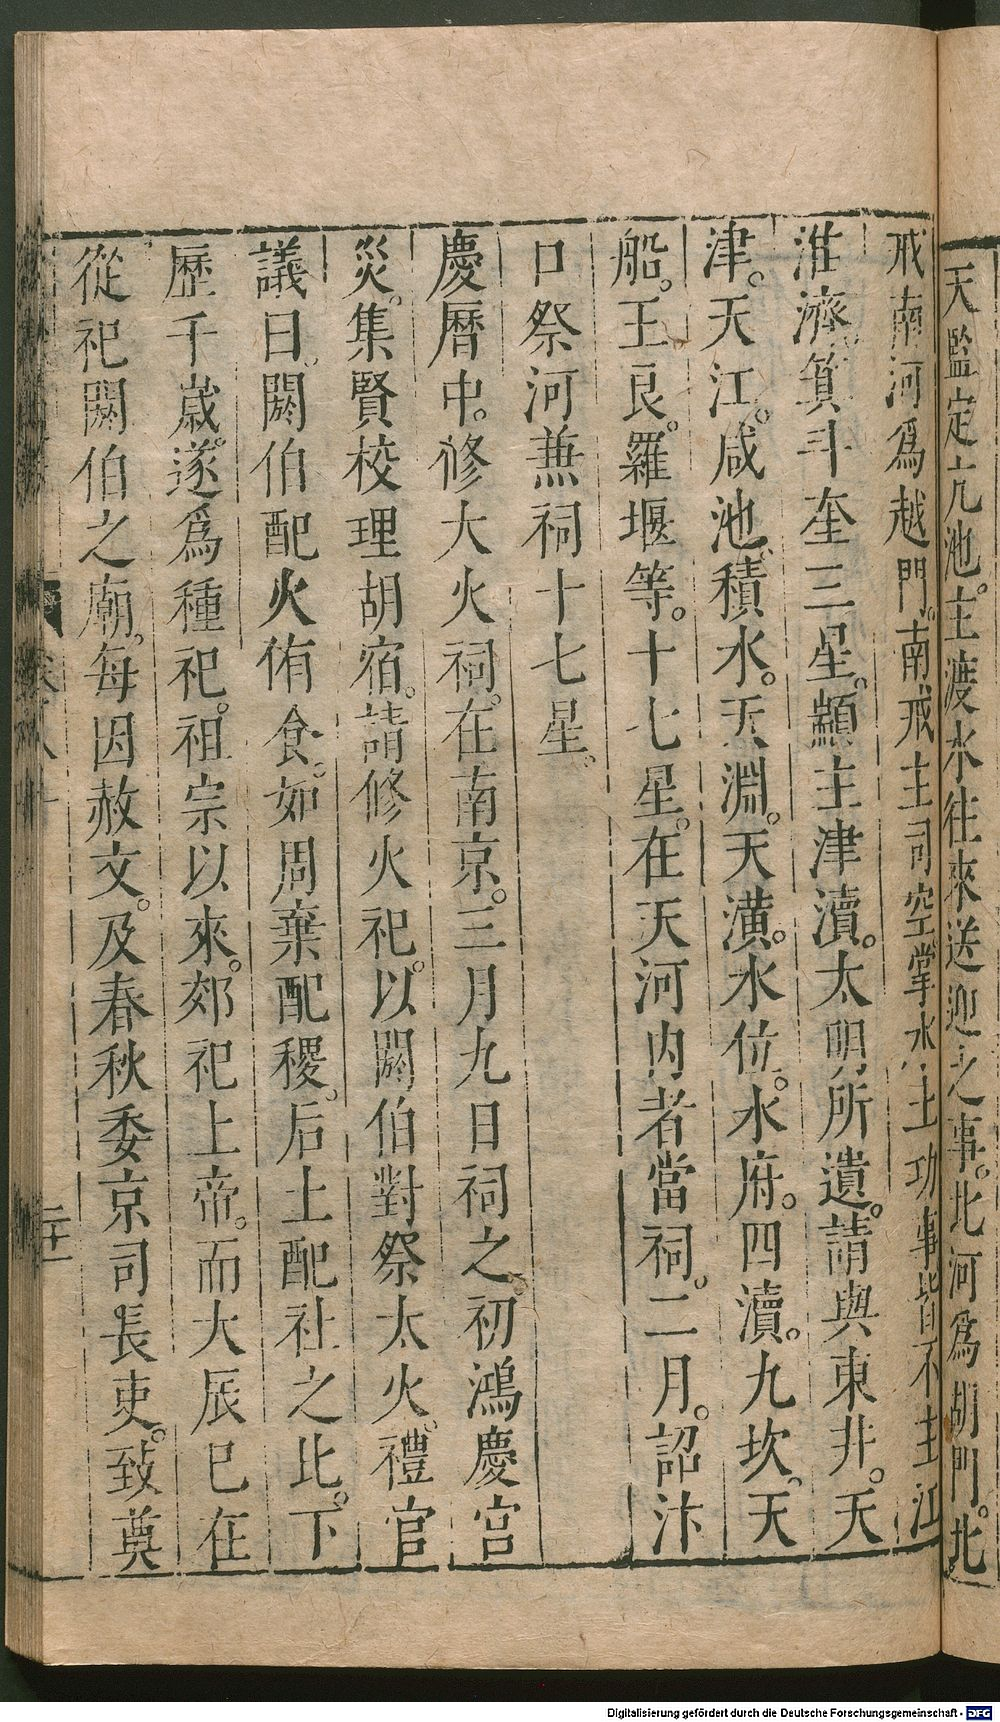 天鑑定亢池。主渡水往來送迎之事。北河爲胡門。北
戒南河爲越門。南戒主司空掌水土功事皆不主江
淮濟箕斗奎三星。顓主津瀆。太明所遺。請與東井。天
津。天江。咸池。積水。天淵。天潢。水位。水府。四瀆。九坎。天
船。王良。羅堰等。十七星。在天河内者當祠。二月。詔汴
口祭河兼祠十七星。
慶曆中。修大火祠。在南京。三月九日祠之。初鴻慶宫
災。集賢校理胡宿。請修火祀。以閼伯對祭太火。禮官
議曰。閼伯配火侑食。如周棄配稷。后土配社之比。下
歷千歲。遂爲種祀。祖宗以來。郊祀上帝。而大辰已在
從祀閼伯之廟。每因赦文。及春秋委京司長吏。致奠
二十一
Digitalisierung gefördert durch die Deutsche Forschungsgemeinschaft - DFG